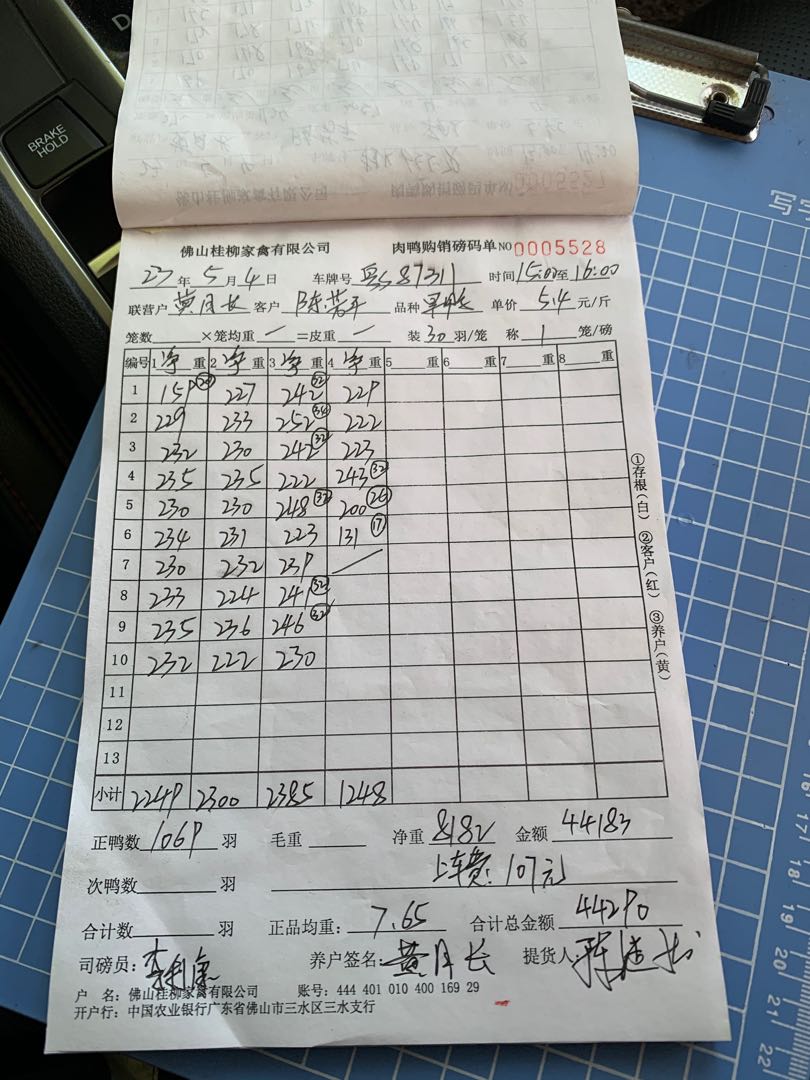 BRAKE HOLD
写字
0005527
佛山桂柳家禽有限公司 肉鸭购销磅码单 NO 0005528
23 年 5 月 4 日 车牌号 粤S87311 时间 15:00 至 16:00
联营户 黄月长 客户 陈 品种 单价 5.4 元/斤
笼数 ×笼均重 一 =皮重 一 装 30 羽/笼 称 1 笼/磅
编号 1 净 重 2 净 重 3 净 重 4 净 重 5 重 6 重 7 重 8 重
1 159 20 227 242 32 229
2 229 233 252 34 222
3 232 230 242 32 223
4 235 235 222 243 32
5 230 230 248 32 200 26
6 234 231 223 131 17
7 230 232 239
8 233 224 241 32
9 235 236 246 32
10 232 222 230
11
12
13
小计 2249 2300 2385 1248
正鸭数 1069 羽 毛重 净重 8182 金额 44183
次鸭数 羽 上车费:107元
合计数 羽 正品均重: 7.65 合计总金额 44290
司磅员: 李 康 养户签名: 黄月长 提货人
户 名: 佛山桂柳家禽有限公司 账号: 444 401 010 400 169 29
开户行: 中国农业银行广东省佛山市三水区三水支行
①存根(白) ②客户(红) ③养户(黄)
16 17 18 19 20 21 22